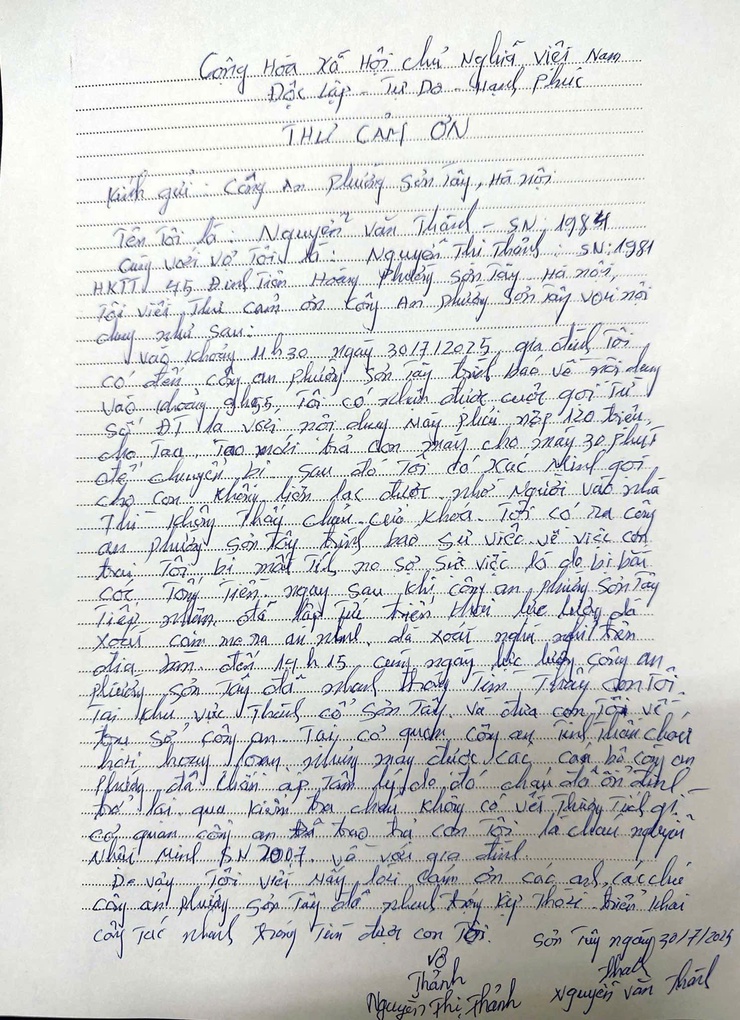 Cộng Hòa Xã Hội Chủ Nghĩa Việt Nam
Độc Lập - Tự Do - Hạnh Phúc
THƯ CẢM ƠN
Kính gửi: Công An Phường Sơn Tây, Hà Nội
Tên Tôi là: Nguyễn Văn Thành - SN: 1984
Cùng với vợ Tôi là: Nguyễn Thị Thảnh: SN: 1981
HKTT 45 Đinh Tiên Hoàng Phường Sơn Tây Hà Nội,
Tôi viết Thư cảm ơn Công An Phường Sơn Tây với nội
dung như sau:
Vào khoảng 11h30 ngày 30/7/2025, gia đình Tôi
có đến công an phường Sơn Tây trình báo về nội dung
vào khoảng 9h55, Tôi có nhận được cuộc gọi Từ
số ĐT lạ với nội dung Mày phải nộp 120 triệu
cho Tao, Tao mới trả con mày, cho mày 30 phút
để chuyển bị. Sau đó Tôi có xác Minh gọi
cho con không liên lạc được. nhờ Người vào nhà
Thì không Thấy cháu, cửa khóa. Tôi có ra công
an phường Sơn Tây trình báo sự việc về việc con
trai Tôi bị mất Tích nơ sợ sự việc là do bị bắt
cóc Tống Tiền. ngay sau khi công an phường Sơn Tây
Tiếp nhận đã lập Tức triển khai lực lượng rà
xoát cam me ra an ninh. dà xoát nghi trên
địa bàn. đến 14h15 cùng ngày lực lượng công an
phường Sơn Tây đã nhanh chóng Tìm Thấy con Tôi
Tại khu vực Thành cổ Sơn Tây. Và đưa con Tôi về
trụ sở công an. Tại cơ quan công an Tinh Thần cháu
hơi hoang loạn nhưng may được các cán bộ công an
Phường đã chấn áp Tâm lý do đó cháu đã ổn định
trở lại qua kiểm tra cháu không có vết Thương Tích gì
cơ quan công an đã trao trả con Tôi là cháu nguyễn
Minh SN 2007. về với gia đình.
Do vậy Tôi viết này lời cảm ơn các anh, các chú
công an phường Sơn Tây đã nhanh kịp Thời triển khai
công Tác nhanh Tìm được con Tôi.
Sơn Tây ngày 30/7/2025
Vợ
Thảnh
Nguyễn Thị Thảnh
Thành
Nguyễn Văn Thành